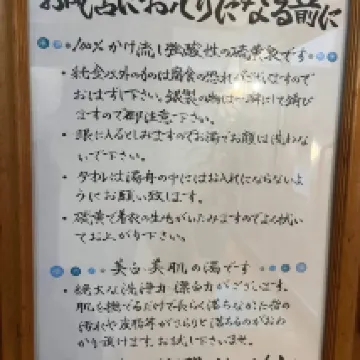 お風呂におはいりになる前に
100%かけ流し強酸性の硫黄泉です
・純金以外のものは腐食の恐れがございますので
おはずし下さい。銀製の物は一瞬にして錆び
ますので御注意下さい。
・眼に入るとしみますのでお湯でお顔は洗わな
いで下さい。
・タオルは湯舟の中にはお入れにならないよ
うにお願い致します。
・硫黄で着衣の生地がいたみますのでよく拭い
てお上がり下さい。
美白・美肌の湯です
・絶大な洗浄力・漂白力がございます。
肌を撫でるだけで長らく落ちなかった指の
汚れや皮脂等がさらりと落ちるのがおわ
かり頂けます。お試し下さいませ。